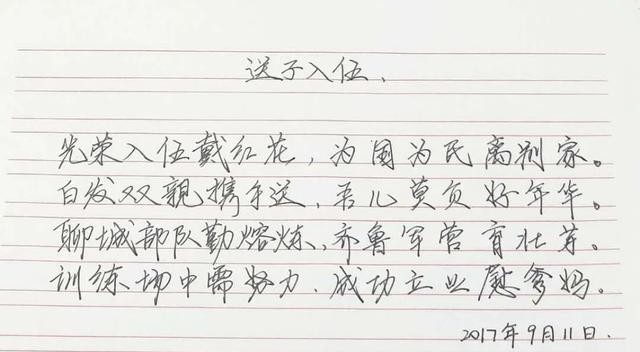 送子入伍.
光荣入伍戴红花，为国为民离别家。
白发双親携手送，吾儿莫负好年华。
聊城部队勤熔炼，齐鲁军营育壮芽。
训练场中需努力，成功立业慰爹妈。
2017年9月11日.